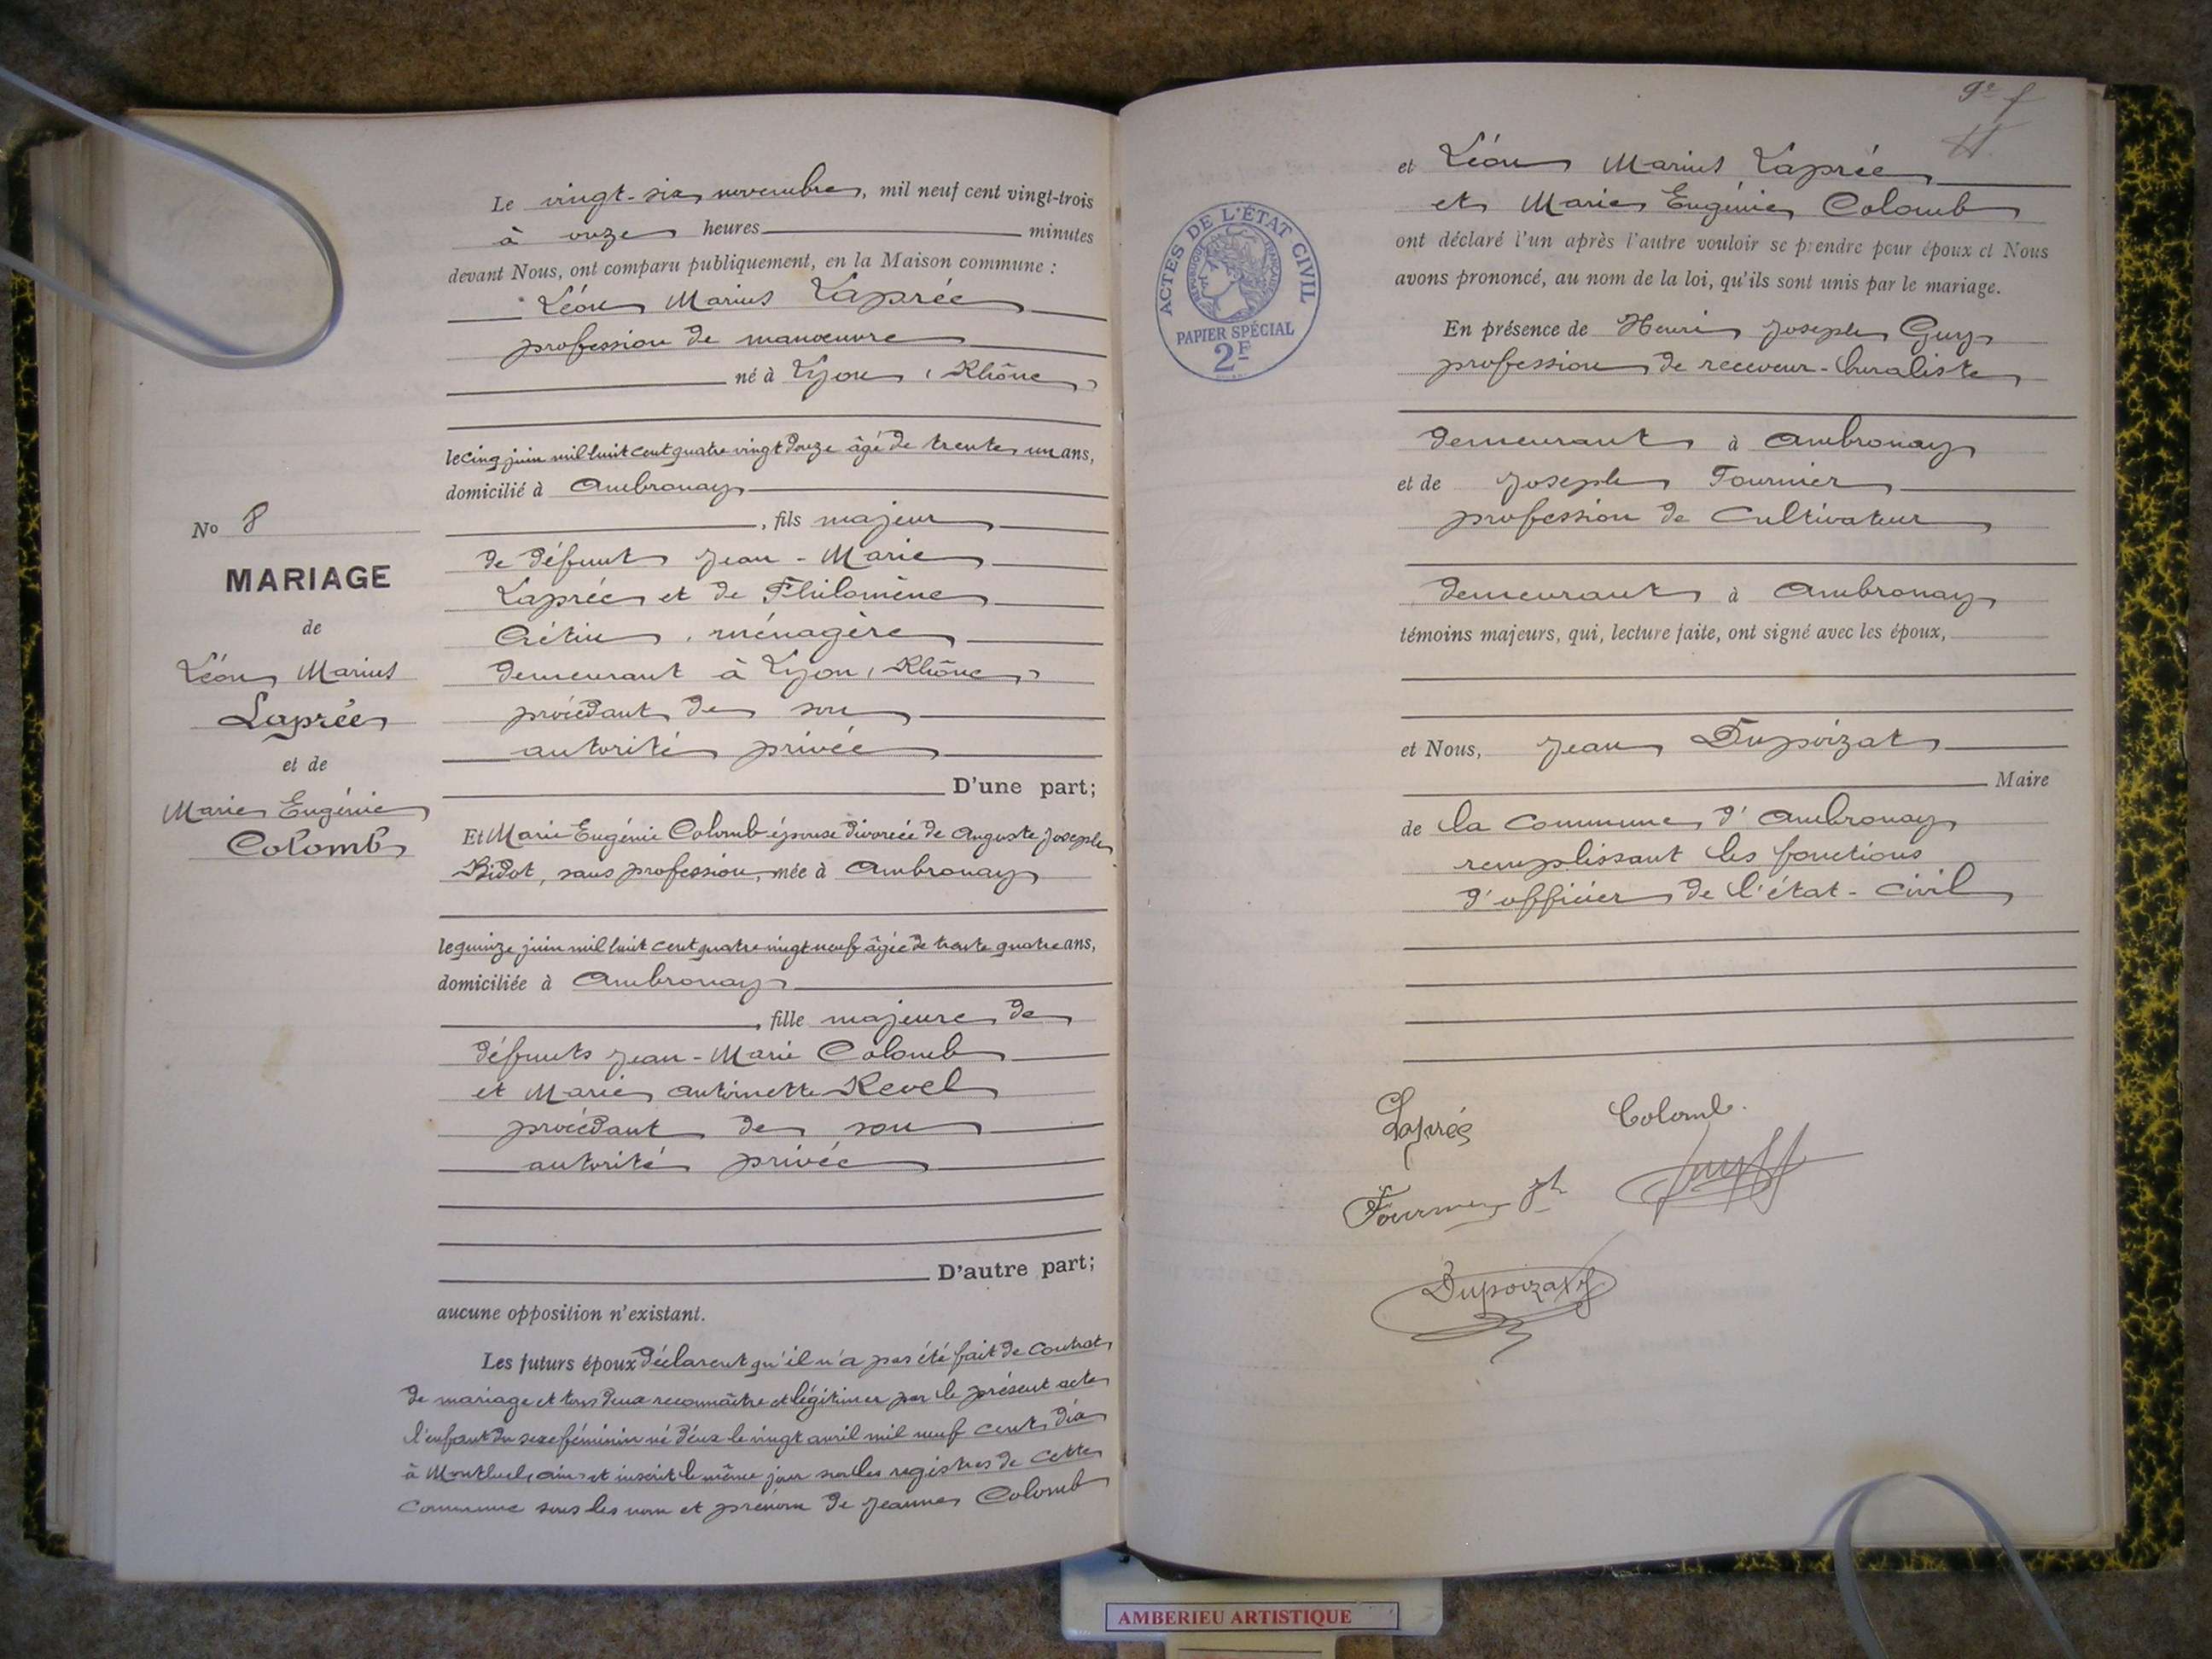 Le vingt-six novembre, mil neuf cent vingt-trois
à onze heures minutes
devant Nous, ont comparu publiquement, en la Maison commune :
Léon Marius Laprée
profession de manœuvre
né à Lyon (Rhône)
le cinq juin mil huit cent quatre vingt douze âgé de trente un ans,
domicilié à Ambronay
, fils majeur
de défunt Jean-Marie
Laprée et de Philomène
Crétin, ménagère
demeurant à Lyon (Rhône)
procédant de son
autorité privée
D'une part;
Et Marie Eugénie Colomb épouse divorcée de Auguste Joseph
Bidot, sans profession, née à Ambronay
le quinze juin mil huit cent quatre vingt neuf âgée de trente quatre ans,
domiciliée à Ambronay
, fille majeure de
défunts Jean-Marie Colomb
et Marie Antoinette Revel
procédant de son
autorité privée
D'autre part;
aucune opposition n'existant.
Les futurs époux déclarent qu'il n'a pas été fait de contrat
de mariage et tous deux reconnaître et légitimer par le présent acte
l'enfant du sexe féminin né d'eux le vingt avril mil neuf cent dix
à Montluel (Ain) et inscrit le même jour sur les registres de cette
commune sous les nom et prénom de Jeanne Colomb
No 8
MARIAGE
de
Léon Marius
Laprée
et de
Marie Eugénie
Colomb
9e f
ACTES DE L'ÉTAT CIVIL
RÉPUBLIQUE FRANÇAISE
PAPIER SPÉCIAL
2F
et Léon Marius Laprée
et Marie Eugénie Colomb
ont déclaré l'un après l'autre vouloir se prendre pour époux et Nous
avons prononcé, au nom de la loi, qu'ils sont unis par le mariage.
En présence de Henri Joseph Guy
profession de receveur-buraliste
demeurant à Ambronay
et de Joseph Fournier
profession de cultivateur
demeurant à Ambronay
témoins majeurs, qui, lecture faite, ont signé avec les époux,
et Nous, Jean Dupoizat
Maire
de la commune d'Ambronay
remplissant les fonctions
d'officier de l'état-civil
Laprée
Colomb.
Fournier Jh
Dupoizat
AMBERIEU ARTISTIQUE